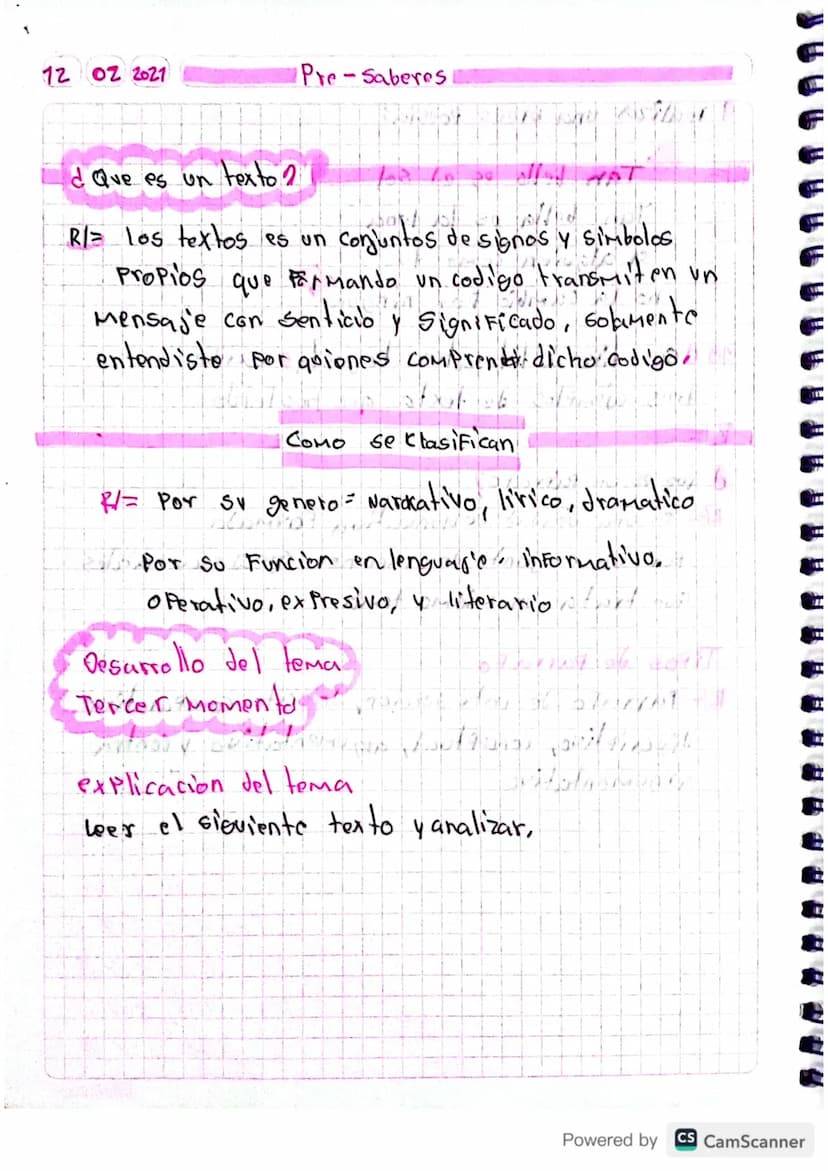 12 02 2021 Pre-Saberes
¿Que es un texto?
R/= los textos es un conjuntos de signos y simbolos
propios que formando un codigo transmiten un
mensaje con sentido y significado, solamente
entendisto por quienes comprende dicho codigo.
Como se clasifican
R/= Por su genero= narrativo, lirico, dramatico
Por su Funcion en lenguaje, informativo,
operativo, expresivo, y literario
Desarrollo del tema
Tercer momento
explicacion del tema
Leer el siguiente texto y analizar,
Powered by CS CamScanner